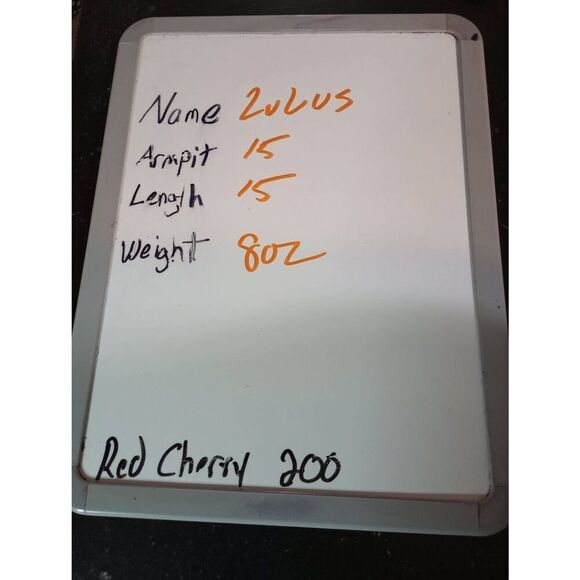 Name ZULUS
Armpit 15
Length 15
Weight 8oz
Red Cherry 200